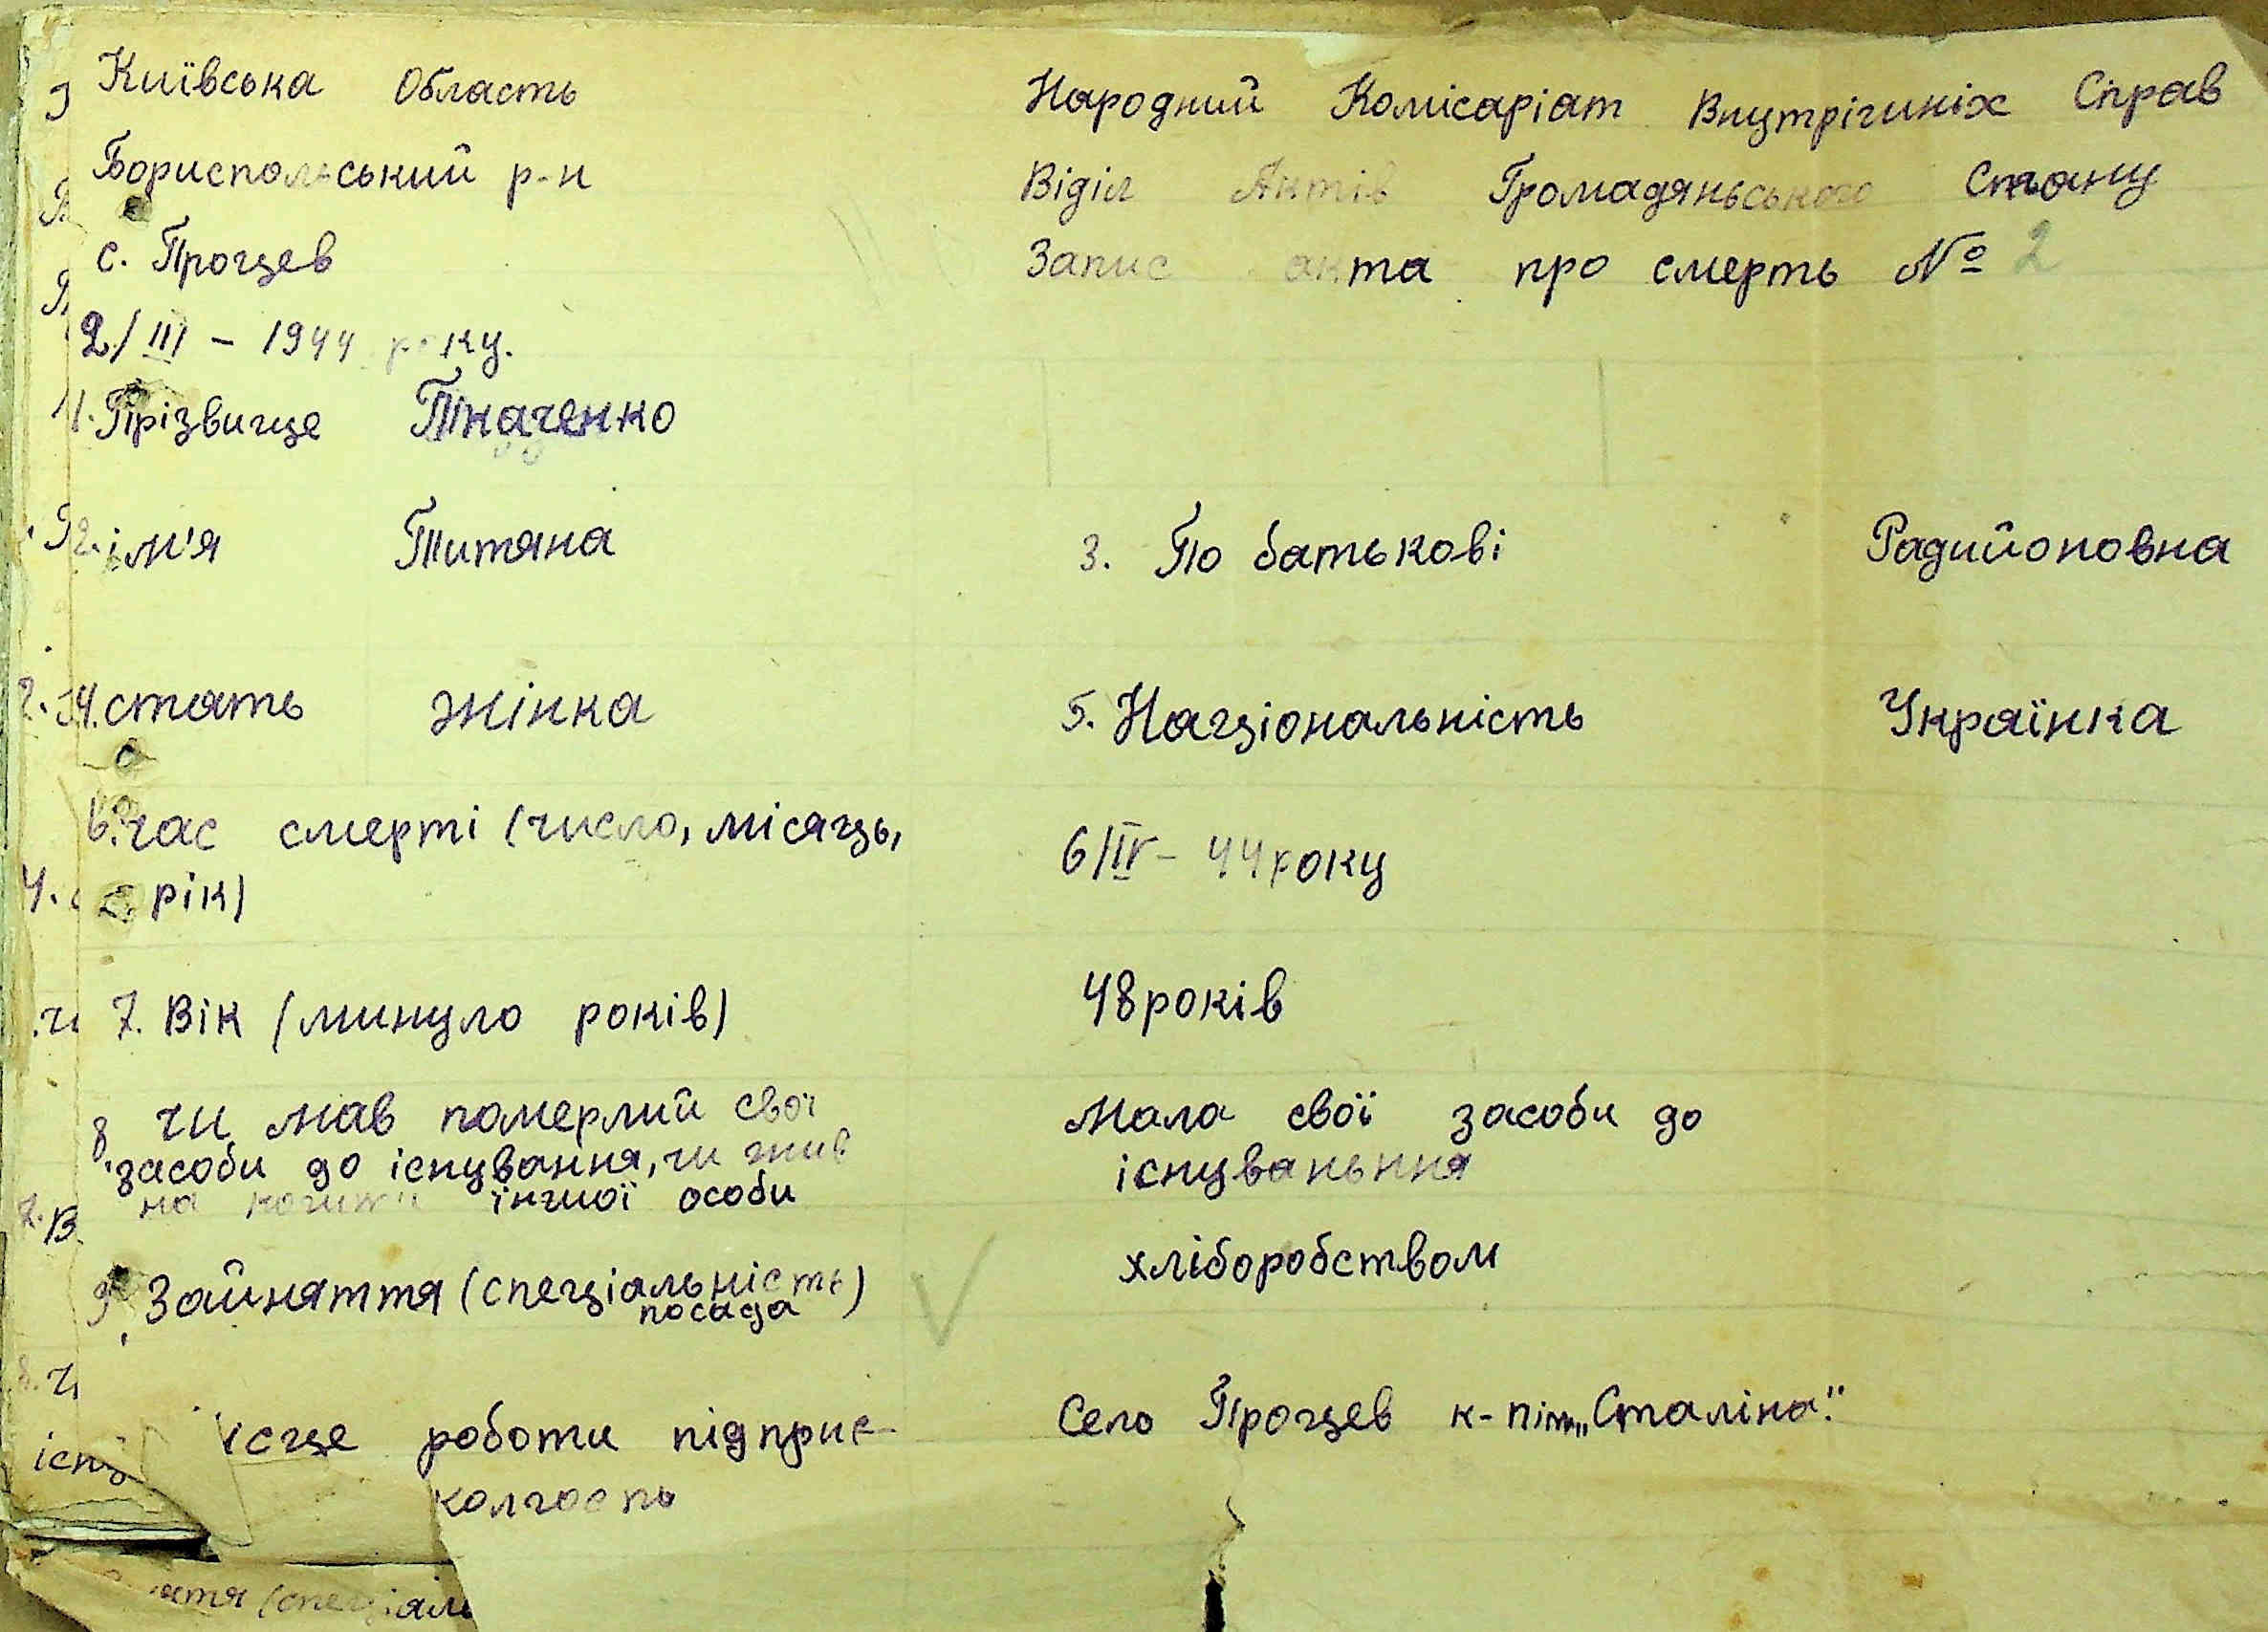 Київська Область
Бориспольський р-н
с. Процев
2/III – 1944 року.
Народний Комісаріат Внутрішніх Справ
Віділ Актів Громадяньського Стану
Запис акта про смерть № 2
1. Прізвище Ткаченко
2. ім'я Титяна 3. По батькові Радийоновна
4. стать жінка 5. Національність Українка
6. час смерті (число, місяць, 6/IV – 44 року
рік)
7. Вік (минуло років) 48 років
8. чи мав померлий свої Мала свої засоби до
засоби до існування, чи жив існуваньння
на кошти іншої особи
9. Зайняття (спеціальність) хліборобством
посада
ісце роботи підприє- Село Процев к-п ім. „Сталіна".
колгосп